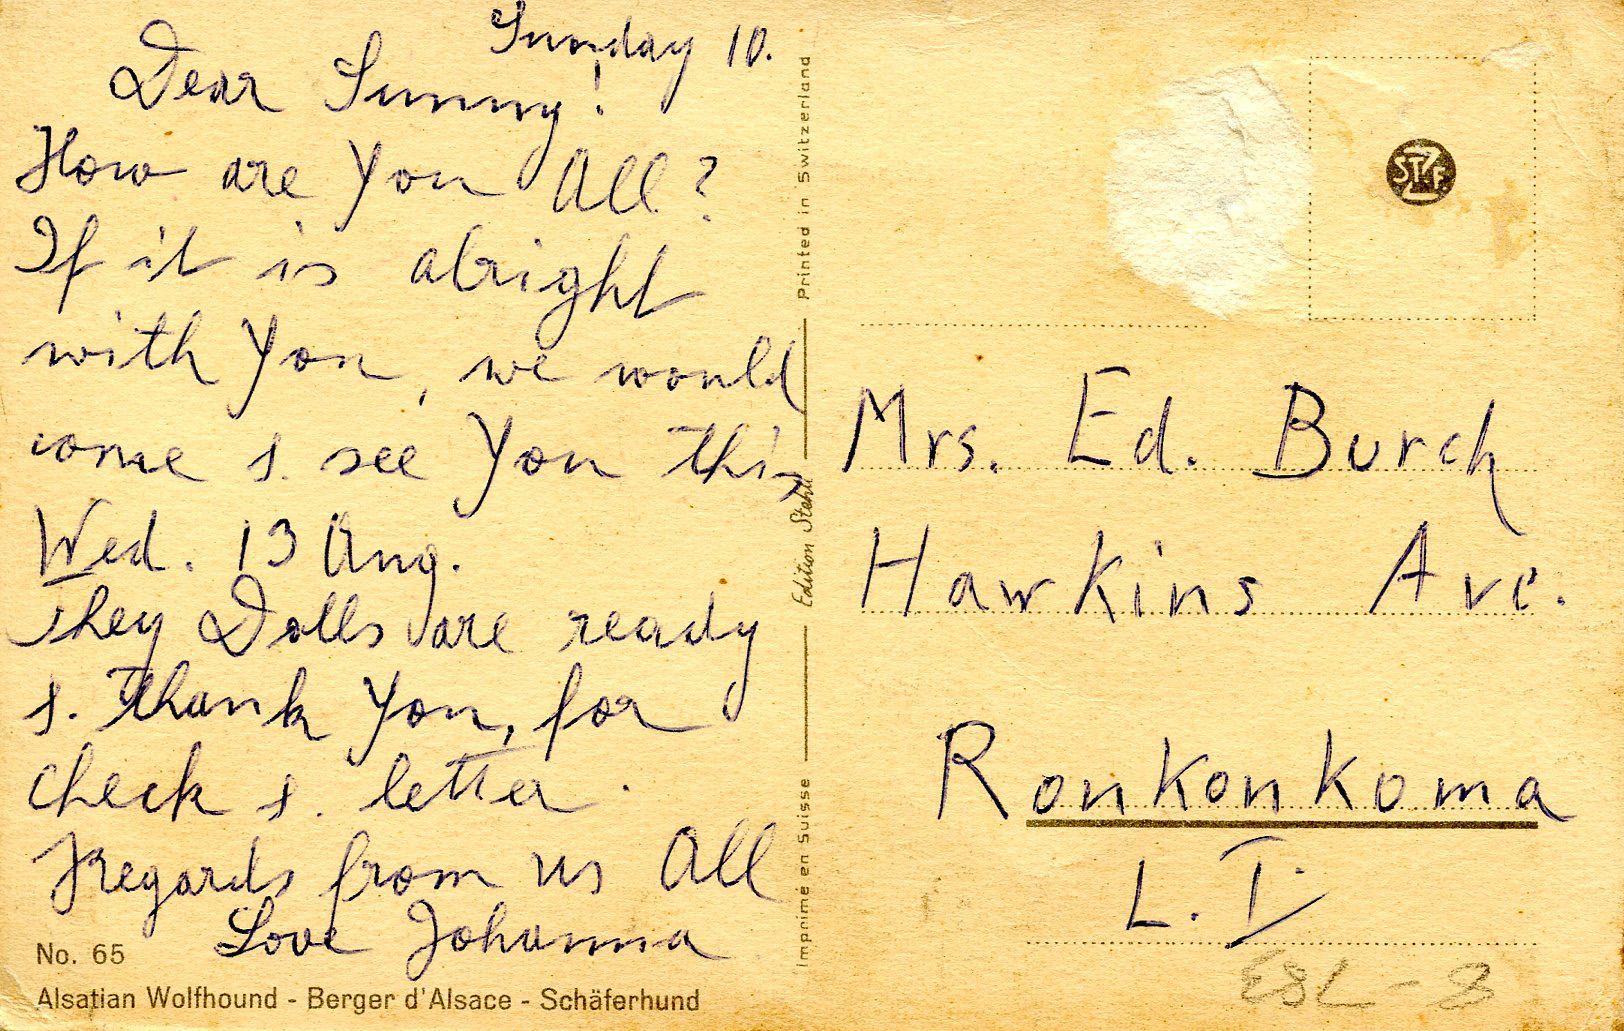 Sunday 10.
Dear Sunny!
How are You All?
If it is alright
with You, we would
come s. see You this
Wed. 13 Aug.
They Dolls are ready
s. Thank You, for
check s. letter.
Regards from us All
Love Johanna
No. 65
Alsatian Wolfhound - Berger d'Alsace - Schäferhund
Imprimé en Suisse
Edition Stehli
Printed in Switzerland
STZF.
Mrs. Ed. Burch
Hawkins Ave.
Ronkonkoma
L. I.
ESL - 8